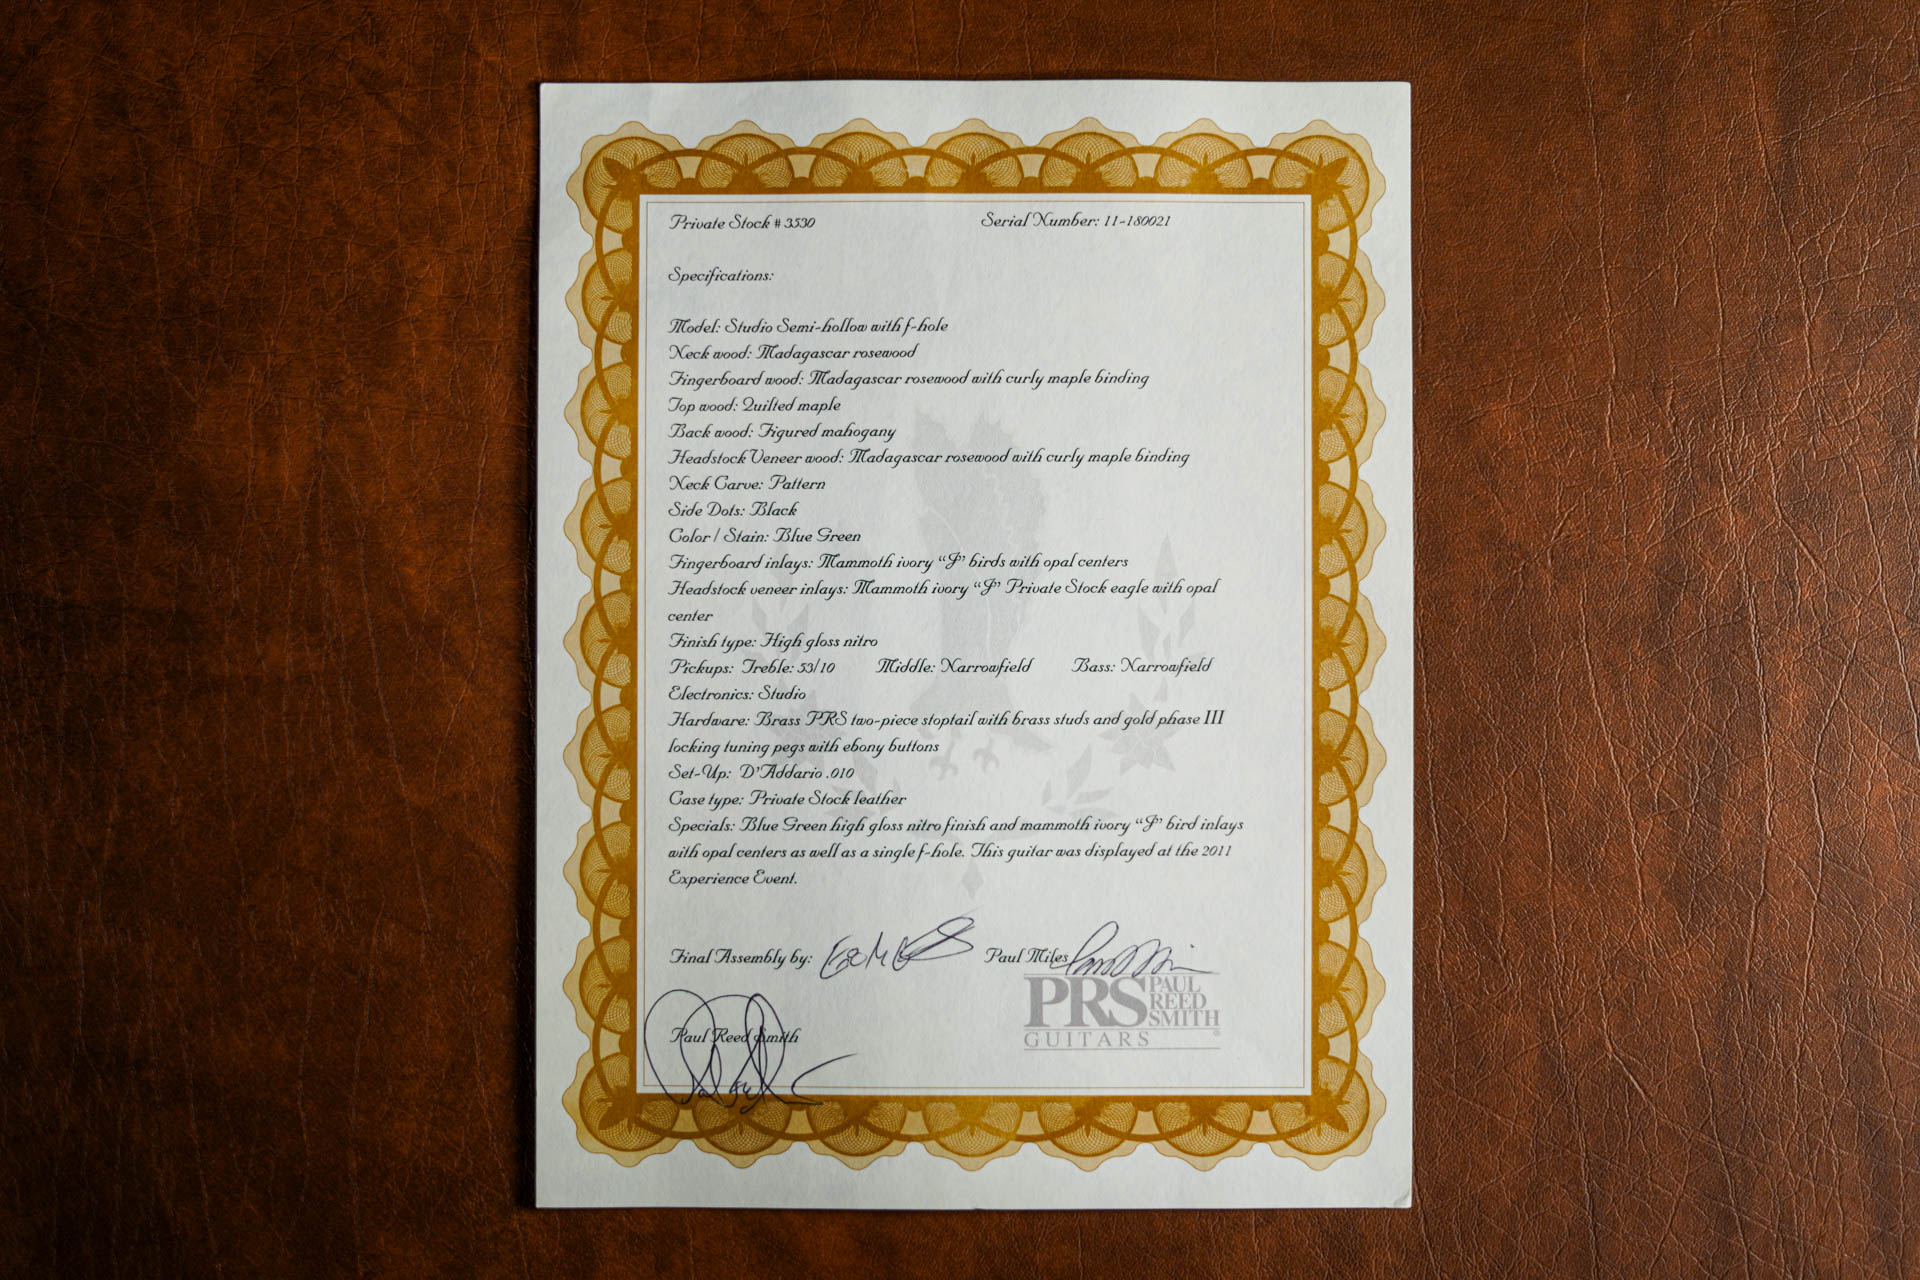 Private Stock # 3530 Serial Number: 11-180021
Specifications:
Model: Studio Semi-hollow with f-hole
Neck wood: Madagascar rosewood
Fingerboard wood: Madagascar rosewood with curly maple binding
Top wood: Quilted maple
Back wood: Figured mahogany
Headstock Veneer wood: Madagascar rosewood with curly maple binding
Neck Carve: Pattern
Side Dots: Black
Color / Stain: Blue Green
Fingerboard inlays: Mammoth ivory “J” birds with opal centers
Headstock veneer inlays: Mammoth ivory “J” Private Stock eagle with opal
center
Finish type: High gloss nitro
Pickups: Treble: 53/10 Middle: Narrowfield Bass: Narrowfield
Electronics: Studio
Hardware: Brass PRS two-piece stoptail with brass studs and gold phase III
locking tuning pegs with ebony buttons
Set-Up: D'Addario .010
Case type: Private Stock leather
Specials: Blue Green high gloss nitro finish and mammoth ivory “J” bird inlays
with opal centers as well as a single f-hole. This guitar was displayed at the 2011
Experience Event.
Final Assembly by: Paul Miles
PRS PAUL REED SMITH
GUITARS
Paul Reed Smith